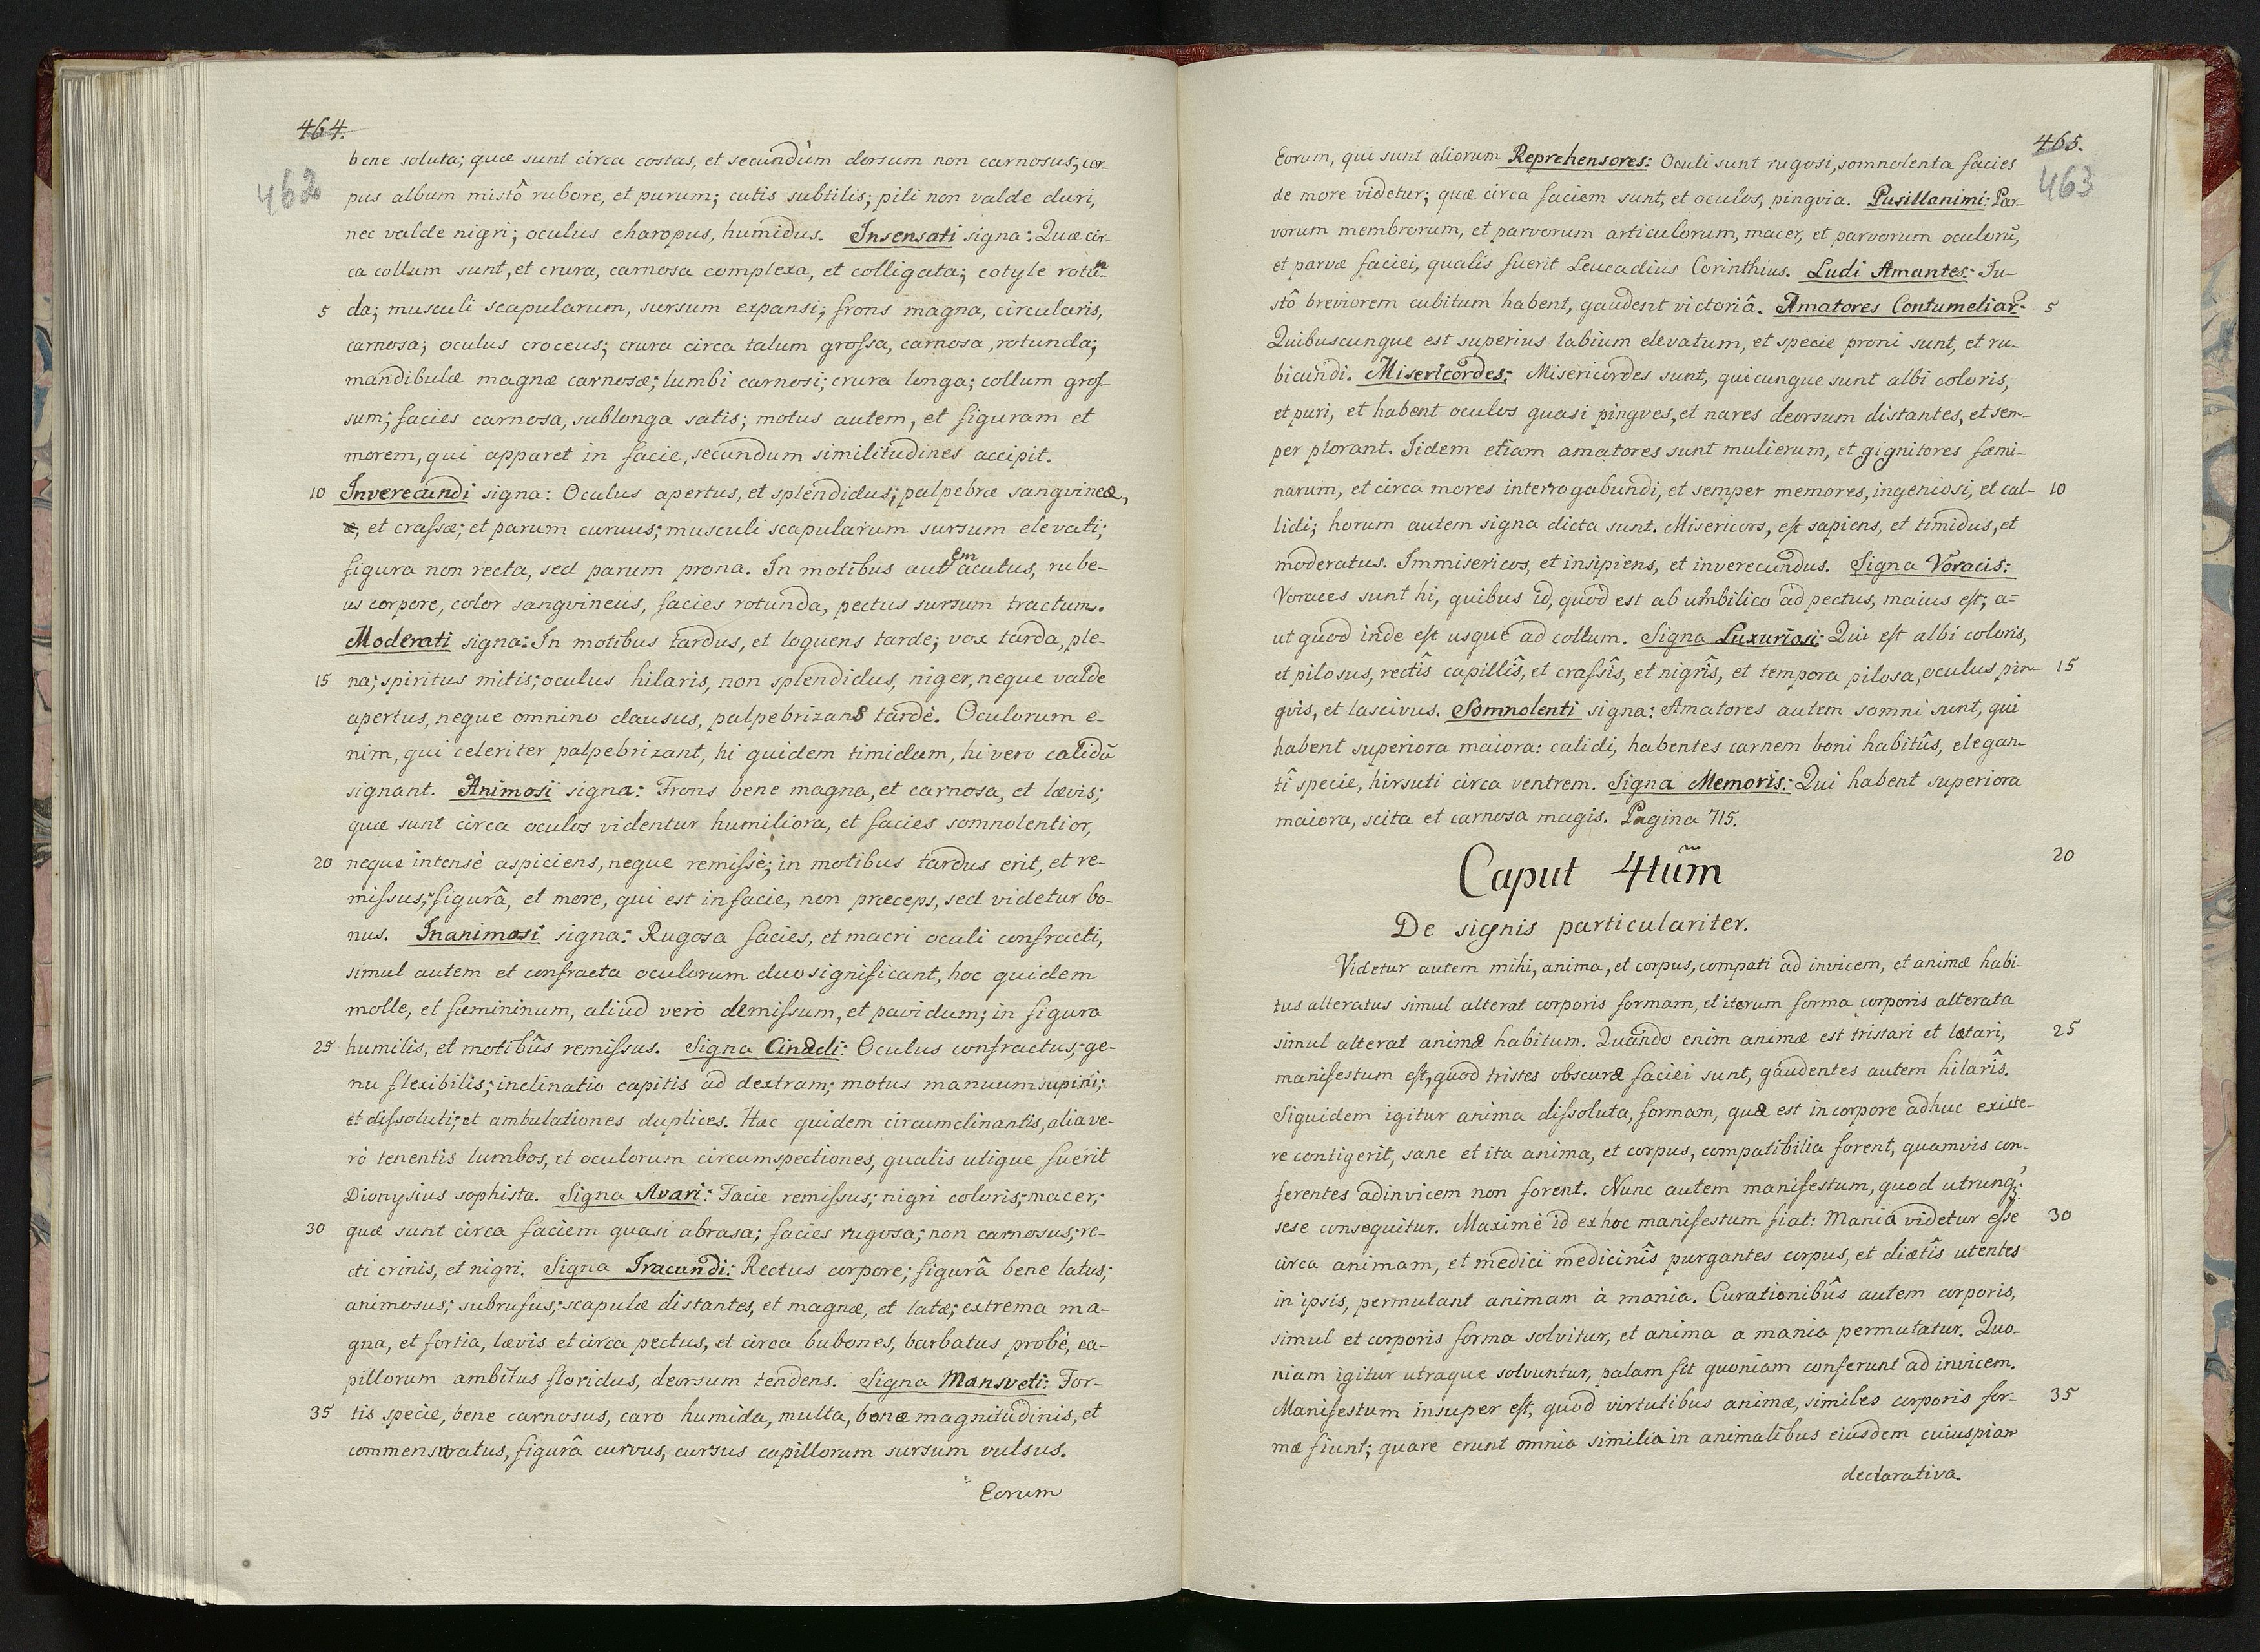 464.
462
bene soluta; quæ sunt circa costas, et secundùm dorsum non carnosus; cor-
pus album mistô rubore, et purum; cutis subtilis; pili non valde duri,
nec valde nigri; oculus charopus, humidus. Insensati signa: Quæ cir-
ca collum sunt, et crura, carnosa complexa, et colligata; cotyle rotun-
5 da; musculi scapularum, sursum expansi; frons magna, circularis,
carnosa; oculus croceus; crura circa talum grossa, carnosa, rotunda;
mandibulæ magnæ carnosæ; lumbi carnosi; crura longa; collum gros-
sum; facies carnosa, sublonga satis; motus autem, et figuram et
morem, qui apparet in facie, secundum similitudines accipit.
10 Inverecundi signa: Oculus apertus, et splendidus; palpebræ sangvineæ,
æ, et crassæ; et parum curuus; musculi scapularum sursum elevati;
figura non recta, sed parum prona. In motibus autem acutus, rube-
us corpore, color sangvineus, facies rotunda, pectus sursum tractum.
Moderati signa: In motibus tardus, et loquens tarde; vox tarda, ple-
15 na; spiritus mitis; oculus hilaris, non splendidus, niger, neque valde
apertus, neque omnino clausus, palpebrizans tardè. Oculorum e-
nim, qui celeriter palpebrizant, hi quidem timidum, hi vero calidũ
signant. Animosi signa: Frons bene magna, et carnosa, et lævis;
quæ sunt circa oculos videntur humiliora, et facies somnolentior,
20 neque intensè aspiciens, neque remissè; in motibus tardus erit, et re-
missus; figurâ, et more, qui est in facie, non præceps, sed videtur bo-
nus. Inanimosi signa: Rugosa facies, et macri oculi confracti,
simul autem et confracta oculorum duo significant, hoc quidem
molle, et fæmininum, aliud verò demissum, et pavidum; in figura
25 humilis, et motibûs remissus. Signa Cinædi: Oculus confractus; ge-
nu flexibilis; inclinatio capitis ad dextram; motus manuum supini;
et dissoluti; et ambulationes duplices. Hæc quidem circumclinantis, alia ve-
rò tenentis lumbos, et oculorum circumspectiones, qualis utique fuerit
Dionysius sophista. Signa Avari: Facie remissus; nigri coloris; macer;
30 quæ sunt circa faciem quasi abrasa; facies rugosa; non carnosus; re-
cti crinis, et nigri. Signa Iracundi: Rectus corpore; figurâ bene latus;
animosus; subrufus; scapulæ distantes, et magnæ, et latæ; extrema ma-
gna, et fortia, lævis et circa pectus, et circa bubones, barbatus probè, ca-
pillorum ambitus floridus, deorsum tendens. Signa Mansveti: For-
35 tis specie, bene carnosus, caro humida, multa, bonæ magnitudinis, et
commensuratus, figurâ curvus, cursus capillorum sursum vulsus.
Eorum
465.
463
Eorum, qui sunt aliorum Reprehensores: Oculi sunt rugosi, somnolenta facies
de more videtur; quæ circa faciem sunt, et oculos, pingvia. Pusillanimi: Par-
vorum membrorum, et parvorum articulorum, macer, et parvorum oculorũ,
et parvæ faciei, qualis fuerit Leucadius Corinthius. Ludi Amantes: Iu-
stô breviorem cubitum habent, gaudent victoriâ. Amatores Contumeliar: 5
Quibuscunque est superius labium elevatum, et specie proni sunt, et ru-
bicundi. Misericordes: Misericordes sunt, quicunque sunt albi coloris,
et puri, et habent oculos quasi pingves, et nares deorsum distantes, et sem-
per plorant. Iidem etiam amatores sunt mulierum, et gignitores fæmi-
narum, et circa mores interrogabundi, et semper memores, ingeniosi, et cal- 10
lidi; horum autem signa dicta sunt. Misericors, est sapiens, et timidus, et
moderatus. Immisericos, et insipiens, et inverecundus. Signa Voracis:
Voraces sunt hi, quibus id, quod est ab umbilico ad pectus, maius est; a-
ut quod inde est usque ad collum. Signa Luxuriosi: Qui est albi coloris,
et pilosus, rectîs capillîs, et crassîs, et nigrîs, et tempora pilosa, oculus pin- 15
gvis, et lascivus. Somnolenti signa: Amatores autem somni sunt, qui
habent superiora maiora: calidi, habentes carnem boni habitûs, elegan-
tî specie, hirsuti circa ventrem. Signa Memoris: Qui habent superiora
maiora, scita et carnosa magis. Pagina 715.
20
Caput 4tũm
De signis particulariter.
Videtur autem mihi, anima, et corpus, compati ad invicem, et animæ habi-
tus alteratus simul alterat corporis formam, et iterum forma corporis alterata
simul alterat animæ habitum. Quando enim animæ est tristari et lætari, 25
manifestum est, quod tristes obscuræ faciei sunt, gaudentes autem hilarîs.
Siquidem igitur anima dissoluta, formam, quæ est in corpore adhuc existe-
re contigerit, sane et ita anima, et corpus, compatibilia forent, quamvis con-
ferentes adinvicem non forent. Nunc autem manifestum, quod utrunq;
sese consequitur. Maximè id ex hoc manifestum fiat: Mania videtur esse 30
circa animam, et medici medicinîs purgantes corpus, et diætîs utentes
in ipsis, permutant animam à mania. Curationibûs autem corporis,
simul et corporis forma solvitur, et anima a mania permutatur. Quo-
niam igitur utraque solvuntur, palam fit quoniam conferunt ad invicem.
Manifestum insuper est, quod virtutibus animæ, similes corporis for- 35
mæ fiunt; quare erunt omnia similia in animalibus eiusdem cuiuspiam
declarativa.